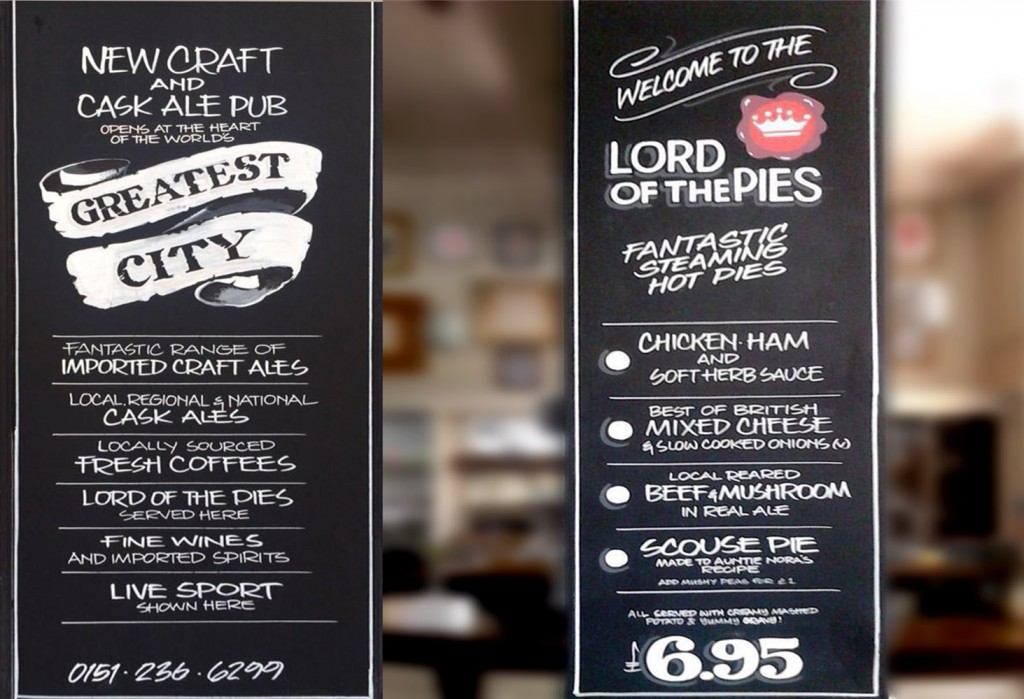 NEW CRAFT
AND
CASK ALE PUB
OPENS AT THE HEART
OF THE WORLD'S
GREATEST
CITY
FANTASTIC RANGE OF
IMPORTED CRAFT ALES
LOCAL, REGIONAL & NATIONAL
CASK ALES
LOCALLY SOURCED
FRESH COFFEES
LORD OF THE PIES
SERVED HERE
FINE WINES
AND IMPORTED SPIRITS
LIVE SPORT
SHOWN HERE
0151·236·6299
WELCOME TO THE
LORD
OF THE PIES
FANTASTIC
STEAMING
HOT PIES
CHICKEN·HAM
AND
SOFT HERB SAUCE
BEST OF BRITISH
MIXED CHEESE
& SLOW COOKED ONIONS (V)
LOCAL REARED
BEEF & MUSHROOM
IN REAL ALE
SCOUSE PIE
MADE TO AUNTIE NORA'S
RECIPE
ADD MUSHY PEAS FOR £1
ALL SERVED WITH CREAMY MASHED
POTATO & YUMMY GRAVY!
£6.95